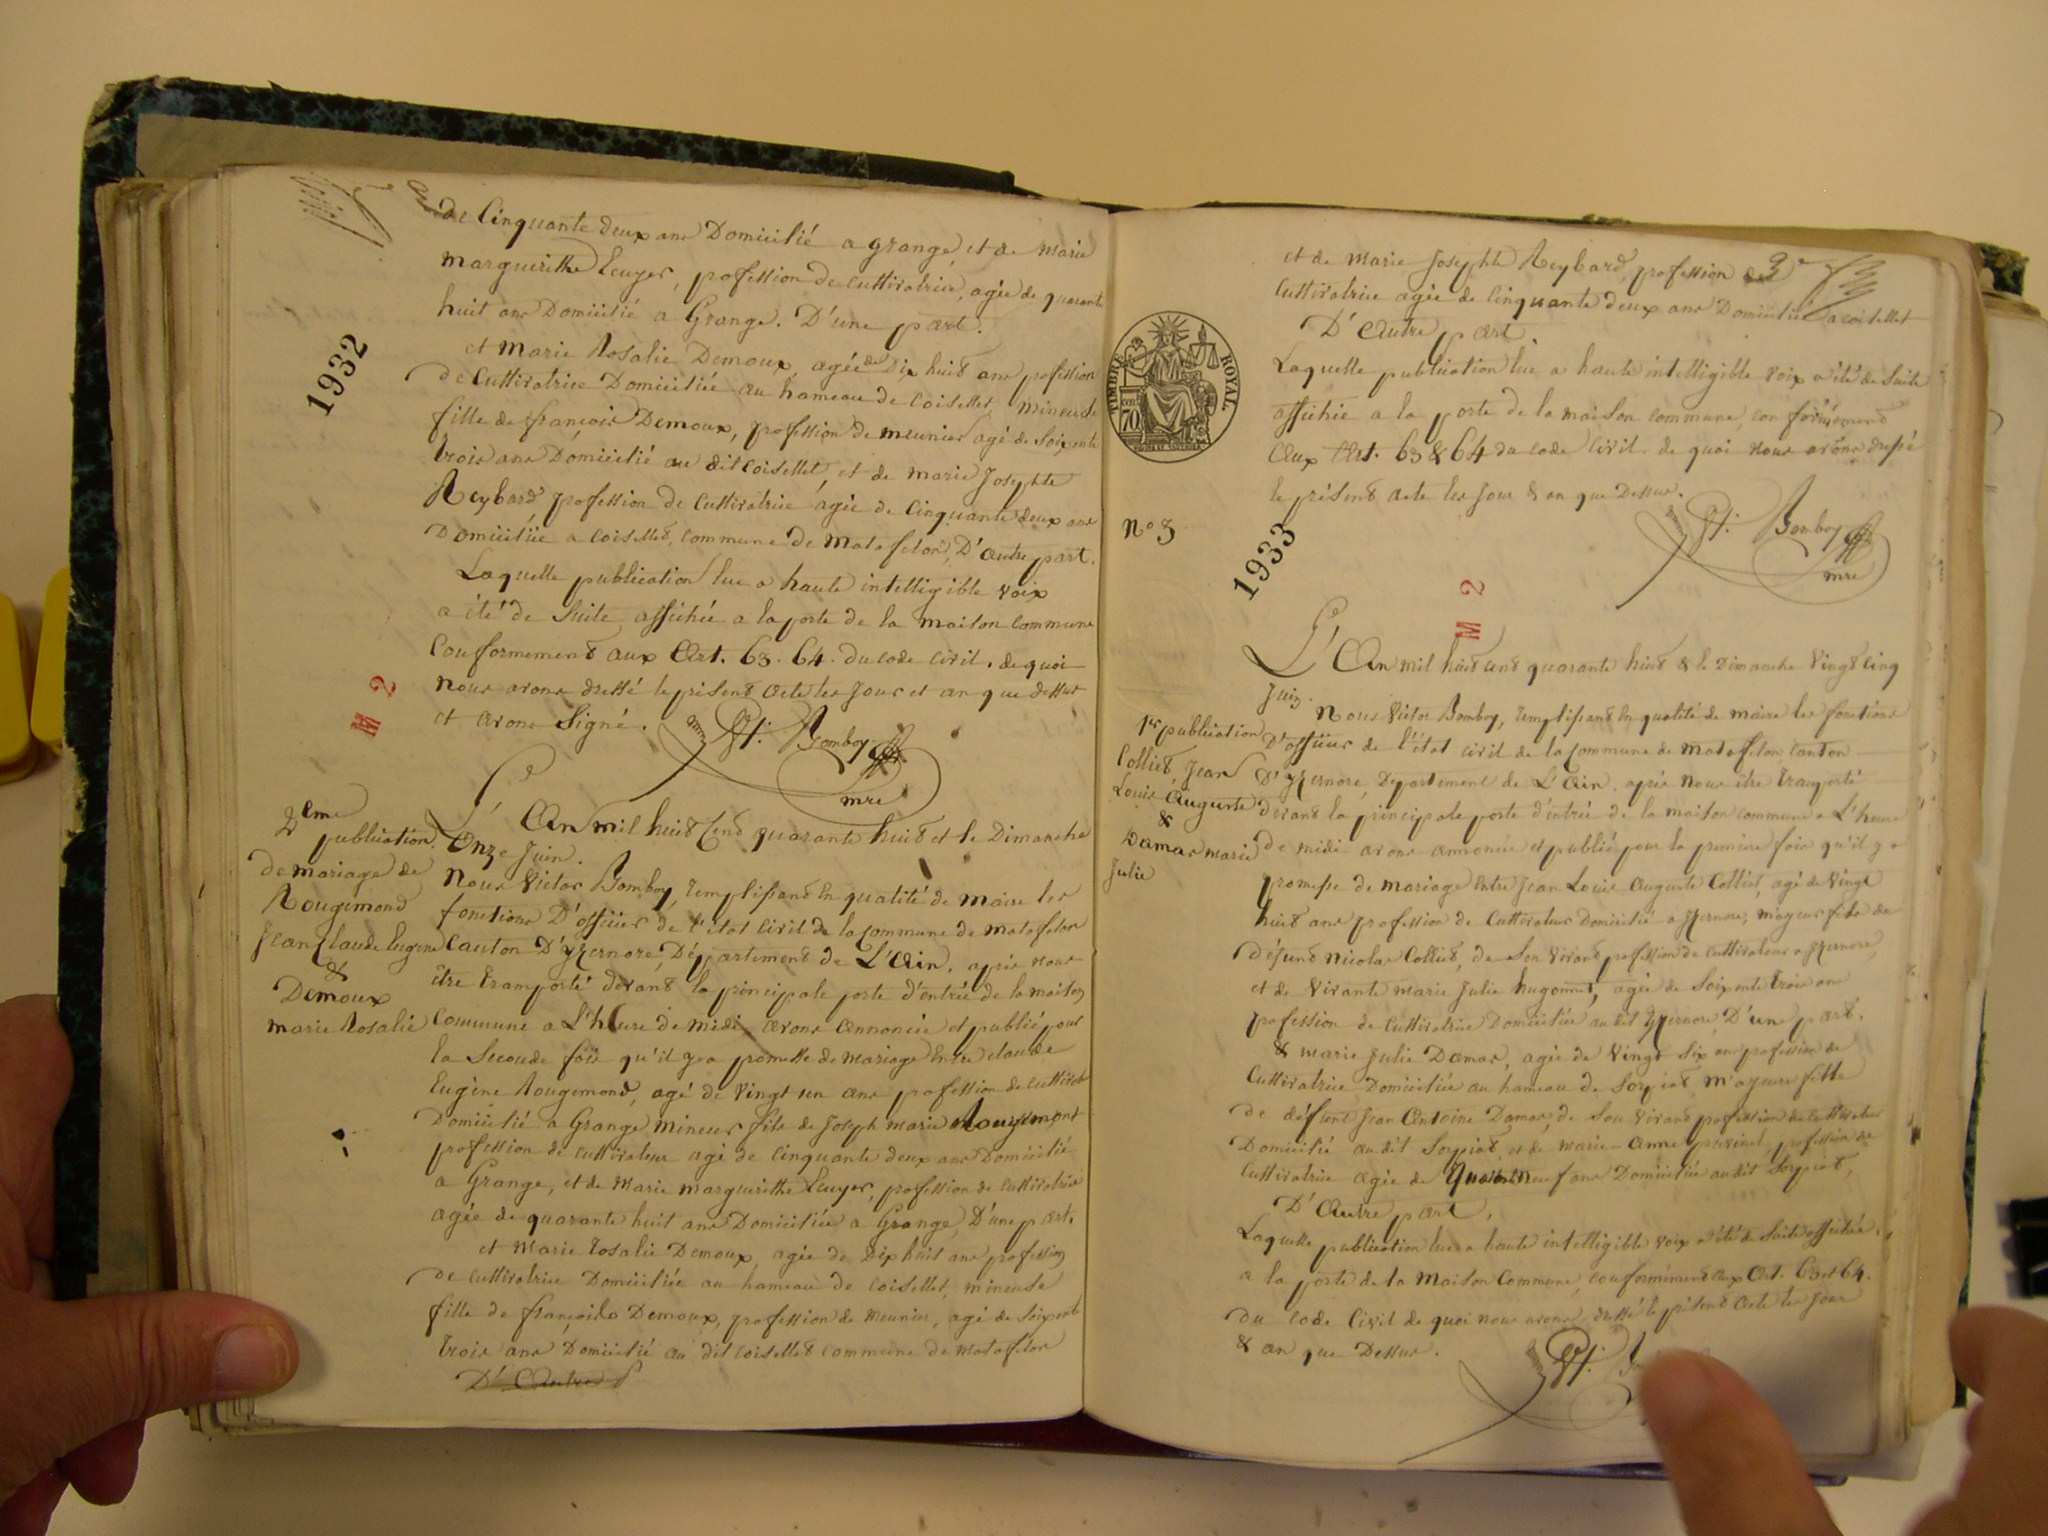 de Cinquante deux ans Domicilié a grange, et de marie
marguerithe Ecuyer, profession de cultivatrice, agée de quarante
huit ans Domicilié a Grange. D'une part.
et Marie Rosalie Demoux, agée de Dix huit ans profession
de Cultivatrice Domiciliée au hameau de Coisellet, mineuse
fille de françois Demoux, profession de meunier agé de Soixente
trois ans Domicilié au dit Coisellet, et de marie Josephte
Reybard, profession de Cultivatrice agée de Cinquante deux ans
Domiciliée a Coisellet, commune de Matafelon, D'autre part.
Laquelle publication lue a haute intelligible voix
a été de Suite affichée a la porte de la maison commune
Conformement aux Art. 63. 64. du code civil. de quoi
nous avons dressé le présent acte les jour et an que dessus
et avons Signé.
Vt. Bomboy
mre
1932
M 2
2eme
publication
de mariage de
Rougemond
Jean Claude Eugène
&
Demoux
marie Rosalie
L'An mil huit Cent quarante huit et le Dimanche
Onze Juin.
Nous Victor Bomboy, remplissant en qualité de Maire les
fonctions D'officier de l'état Civil de la Commune de Matafelon
Canton D'yzernore, Département de L'Ain, après nous
être transporté devant la principale porte d'entrée de la maison
commune a L'heure de midi avons annoncée et publié pour
la Seconde fois qu'il y a promesse de mariage Entre claude
Eugène Rougemond, agé de vingt un ans profession de cultivateur
Domicilié a Grange mineur fils de Joseph marie Rougemont
profession de cultivateur agé de cinquante deux ans Domicilié
a Grange, et de Marie marguerithe Ecuyer, profession de cultivatrice
agée de quarante huit ans Domiciliée a Grange, D'une part.
et Marie rosalie Demoux, agée de Dix huit ans profession
de cultivatrice Domiciliée au hameau de Coisellet, mineuse
fille de françois Demoux, profession de Meunier, agé de soixente
trois ans Domicilié au dit Coisellet commune de Matafelon
D'Autre p
3e
et de marie Josephte Reybard, profession de
Cultivatrice agée de Cinquante deux ans Domiciliée a coisellet
D'Autre part.
Laquelle publication lue a haute intelligible voix a été de Suite
affichée a la porte de la maison commune, conformément
Aux Art. 63 & 64 du code Civil de quoi nous avons dressé
le présent acte les jour & an que Dessus.
Vt. Bomboy
mre
TIMBRE ROYAL
70
No 3
1933
M 2
1re publication
Colliet, Jean
Louis Auguste
&
Damas marie
Julie
L'An mil huit cent quarante huit & le Dimanche Vingt Cinq
Juin.
Nous Victor Bomboy, remplissant En qualité de maire les fonctions
D'officier de l'état civil de la Commune de Matafelon, Canton
D'yzernore, Département de L'Ain, après nous être transporté
devant la principale porte d'entrée de la maison commune a L'heure
de midi avons annoncée et publié pour la première fois qu'il y a
promesse de mariage Entre Jean Louis Auguste Colliet, agé de vingt
huit ans profession de Cultivateur Domicilié a yzernore, mayeur fils de
défunt Nicolas Colliet, de Son vivant profession de cultivateur a yzernore,
et de vivante marie Julie hugonnet, agée de Soixente trois ans
profession de Cultivatrice Domiciliée au dit yzernore, D'une part.
& marie Julie Damas, agée de vingt six ans profession de
Cultivatrice Domiciliée au hameau de Sorpiat mayeure fille
de défunt Jean Antoine Damas, de Son vivant profession de cultivateur
Domicilié au dit Sorpiat, et de marie-Anne profession de
Cultivatrice agée de Domiciliée au dit Sorpiat,
D'Autre part.
Laquelle publication lue a haute intelligible voix a été de Suite affichée
a la porte de la Maison Commune, conformément aux Art. 63 et 64.
du code Civil de quoi nous avons dressé le présent Acte les jour
& an que Dessus.
Vt.